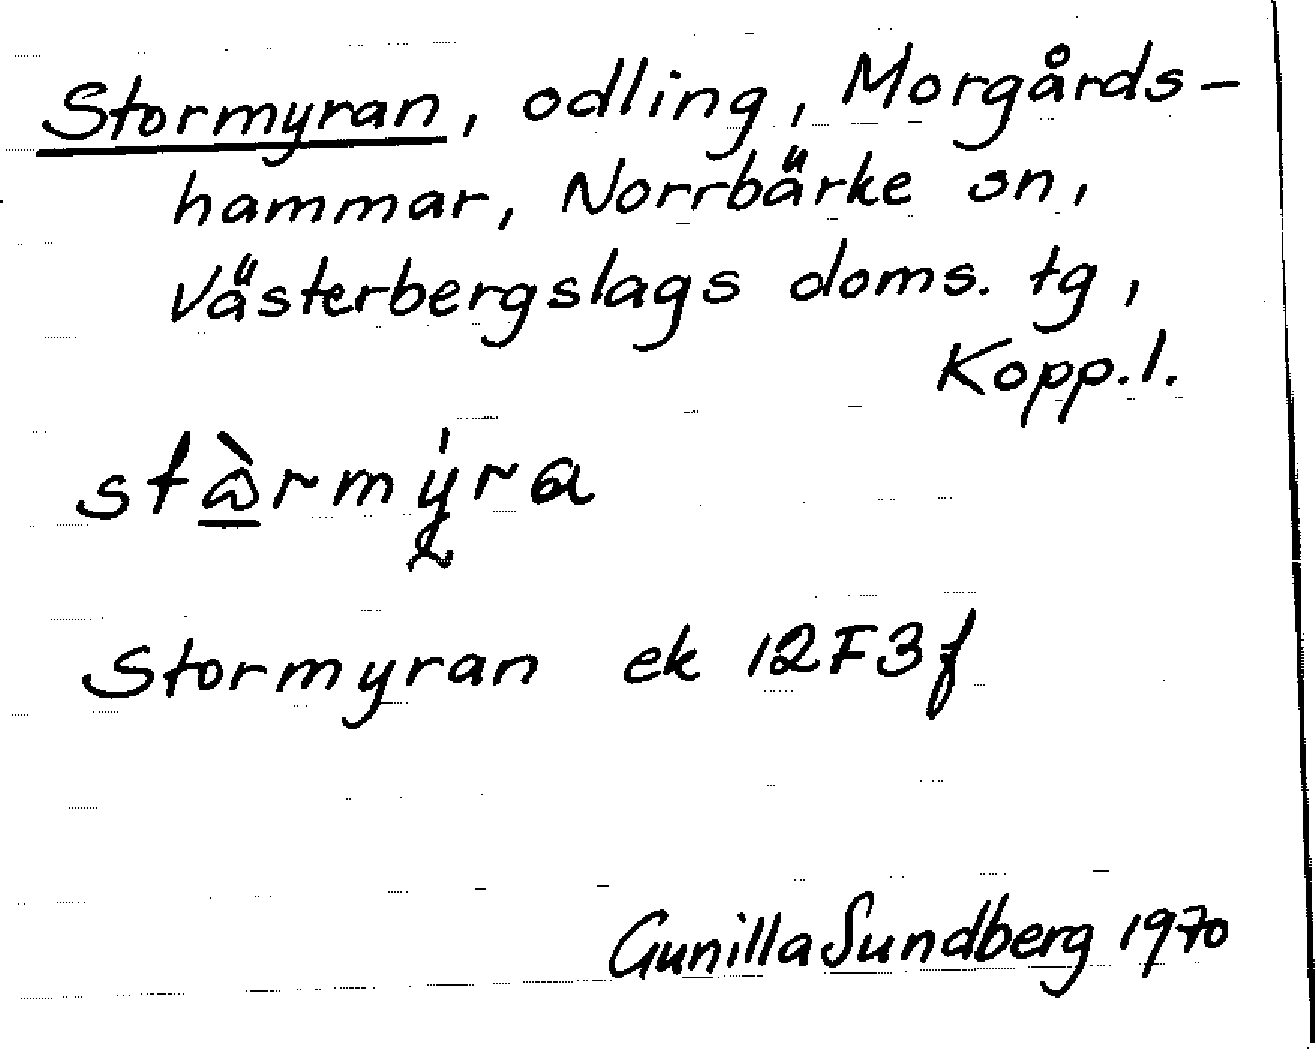 Stormyran, odling, Morgårds-
hammar, Norrbärke sn,
Västerbergslags doms. tg,
Kopp. l.
Stormyran ek 12F3f
Gunilla Sundberg 1970